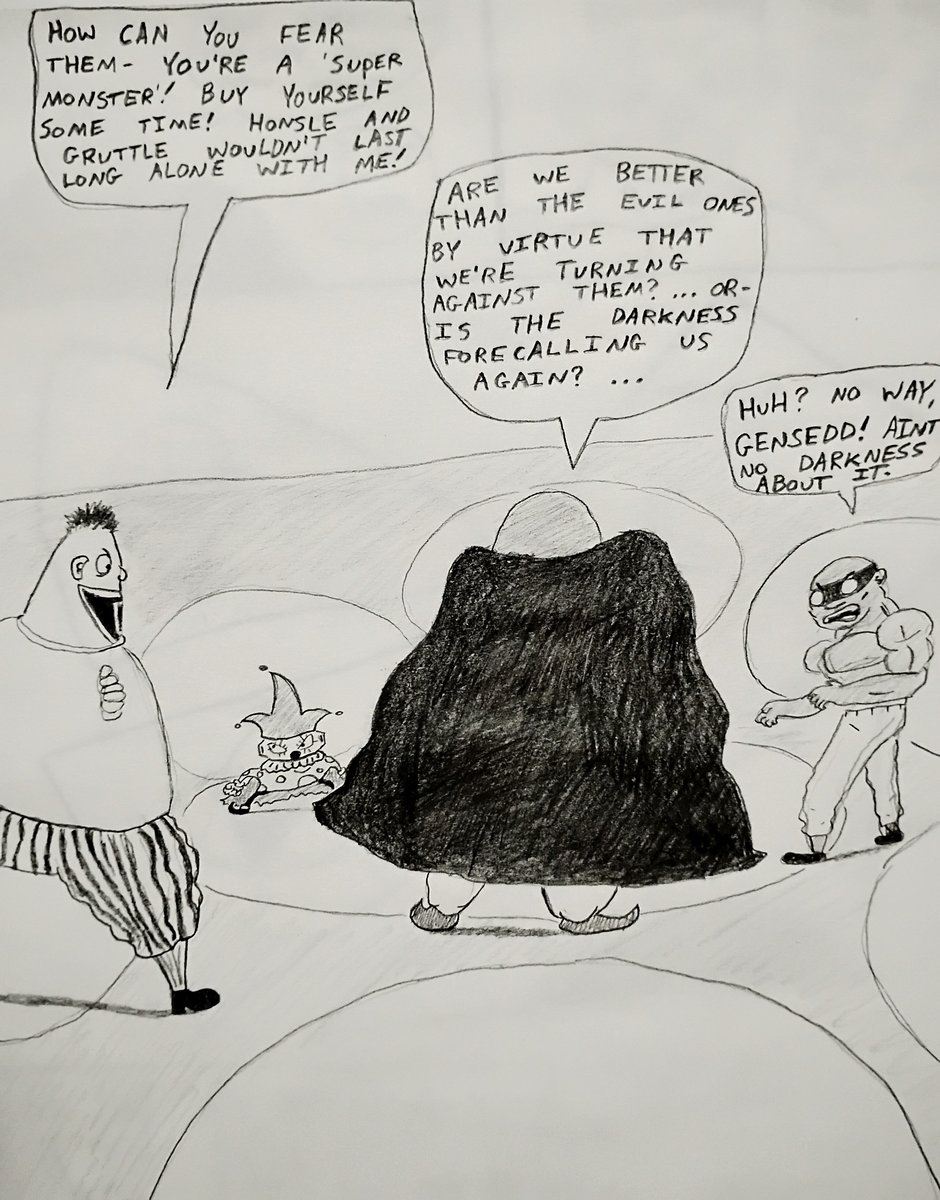 HOW CAN YOU FEAR
THEM- YOU'RE A 'SUPER
MONSTER'! BUY YOURSELF
SOME TIME! HONSLE AND
GRUTTLE WOULDN'T LAST
LONG ALONE WITH ME!
ARE WE BETTER
THAN THE EVIL ONES
BY VIRTUE THAT
WE'RE TURNING
AGAINST THEM? ... OR-
IS THE DARKNESS
FORECALLING US
AGAIN? ...
HUH? NO WAY,
GENSEDD! AINT
NO DARKNESS
ABOUT IT.